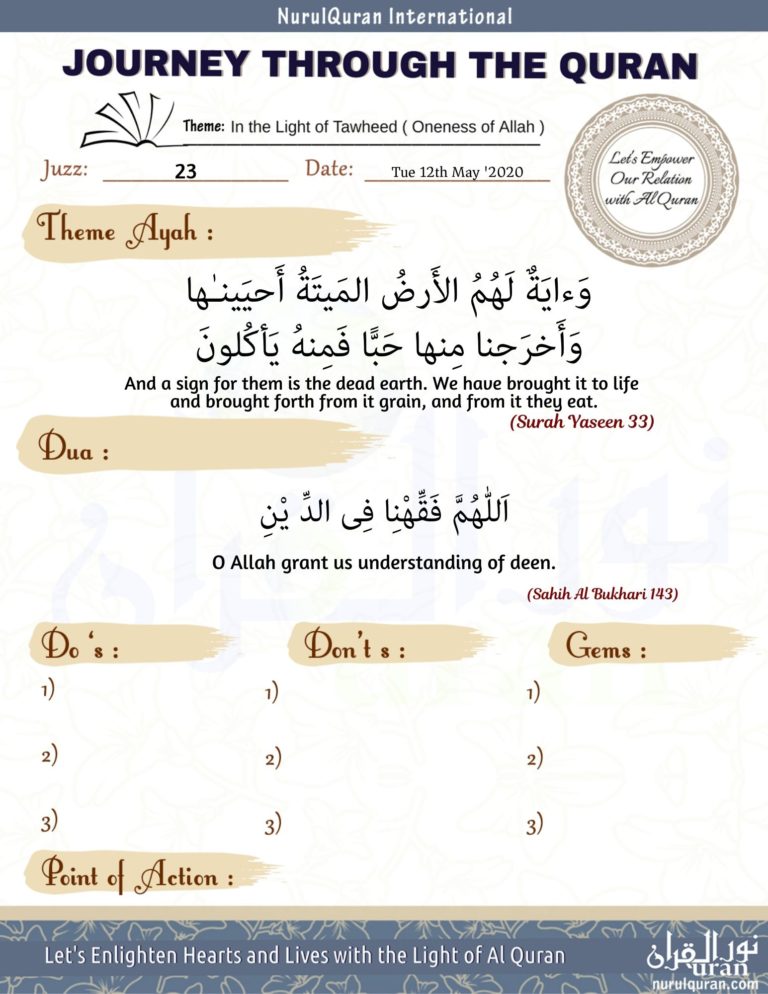 NurulQuran International
JOURNEY THROUGH THE QURAN
Theme: In the Light of Tawheed ( Oneness of Allah )
Juzz: 23 Date: Tue 12th May '2020
Let's Empower
Our Relation
with Al Quran
Theme Ayah :
وَءايَةٌ لَهُمُ الأَرضُ المَيتَةُ أَحيَينـٰها
وَأَخرَجنا مِنها حَبًّا فَمِنهُ يَأكُلونَ
And a sign for them is the dead earth. We have brought it to life
and brought forth from it grain, and from it they eat.
(Surah Yaseen 33)
Dua :
اَللّٰهُمَّ فَقِّهْنِا فِی الدِّ يْنِ
O Allah grant us understanding of deen.
(Sahih Al Bukhari 143)
Do 's : Don't s : Gems :
1) 1) 1)
2) 2) 2)
3) 3) 3)
Point of Action :
Let's Enlighten Hearts and Lives with the Light of Al Quran
نور القرآن
uran
nurulquran.com